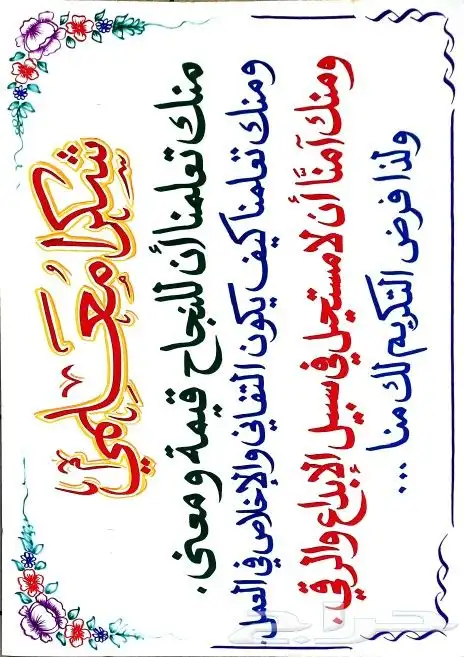 شكرا مُعَلمي
منك تعلمنا أن للنجاح قيمة ومعنى.
ومنك تعلمنا كيف يكون التفاني والإخلاص في العمل.
ومنك آمنَّا أن لا مستحيل في سبيل الإبداع والرقي.
ولذا فرض التكريم لك منا ...
حراج